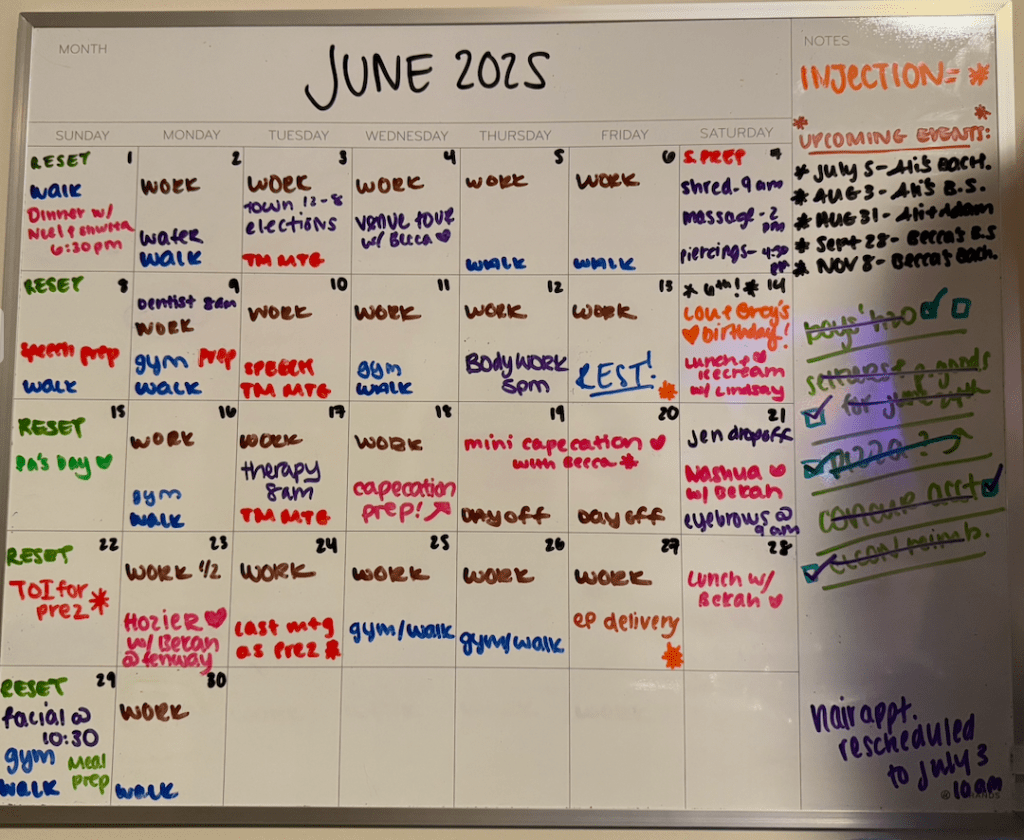 MONTH
JUNE 2025
SUNDAY MONDAY TUESDAY WEDNESDAY THURSDAY FRIDAY SATURDAY
1
RESET
WALK
Dinner w/
Neel + Shweta
6:30pm
2
WORK
water
WALK
3
WORK
TOWN 12-8
elections
TM MTG
4
WORK
VENUE TOUR
w/ Becca ♥
5
WORK
WALK
6
WORK
WALK
7
S. PREP
shred-9am
massage-2
pm
piercings-4:30
PM
8
RESET
speech prep
WALK
9
Dentist 8am
WORK
gym prep
WALK
10
WORK
SPEECH
TM MTG
11
WORK
gym
WALK
12
WORK
BODYWORK
5pm
13
WORK
REST!
*
14
* 6th! *
Lou + Grey's
♥ birthday!
Lunch + ♥
icecream
w/ Lindsay
15
RESET
Pa's Day ♥
16
WORK
gym
WALK
17
WORK
therapy
8am
TM MTG
18
WORK
capecation
prep! ↗
19 20
mini capecation ♥
with Becca *
DAY OFF DAY OFF
21
Jen dropoff
Nashua ♥
w/ Bekah
eyebrows @
9am
22
RESET
TOI for
prez *
23
WORK 1/2
Hozier ♥
w/ Bekah
@ fenway
24
WORK
Last mtg
as Prez *
25
WORK
gym/walk
26
WORK
gym/walk
27
WORK
EP delivery
*
28
Lunch w/
Bekah ♥
29
RESET
facial @
10:30
gym Meal
prep
WALK
30
WORK
WALK
NOTES
INJECTION = *
* *
UPCOMING EVENTS:
* July 5-Ali's Bach.
* AUG 3-Ali's B.S.
* AUG 31-Ali + Adam
* Sept 28-Becca's B.S
* NOV 8-Becca's Bach.
boys' h2o
goods
for june
PIZZA?
concur acct
reimb.
hair appt.
rescheduled
to July 3
10am